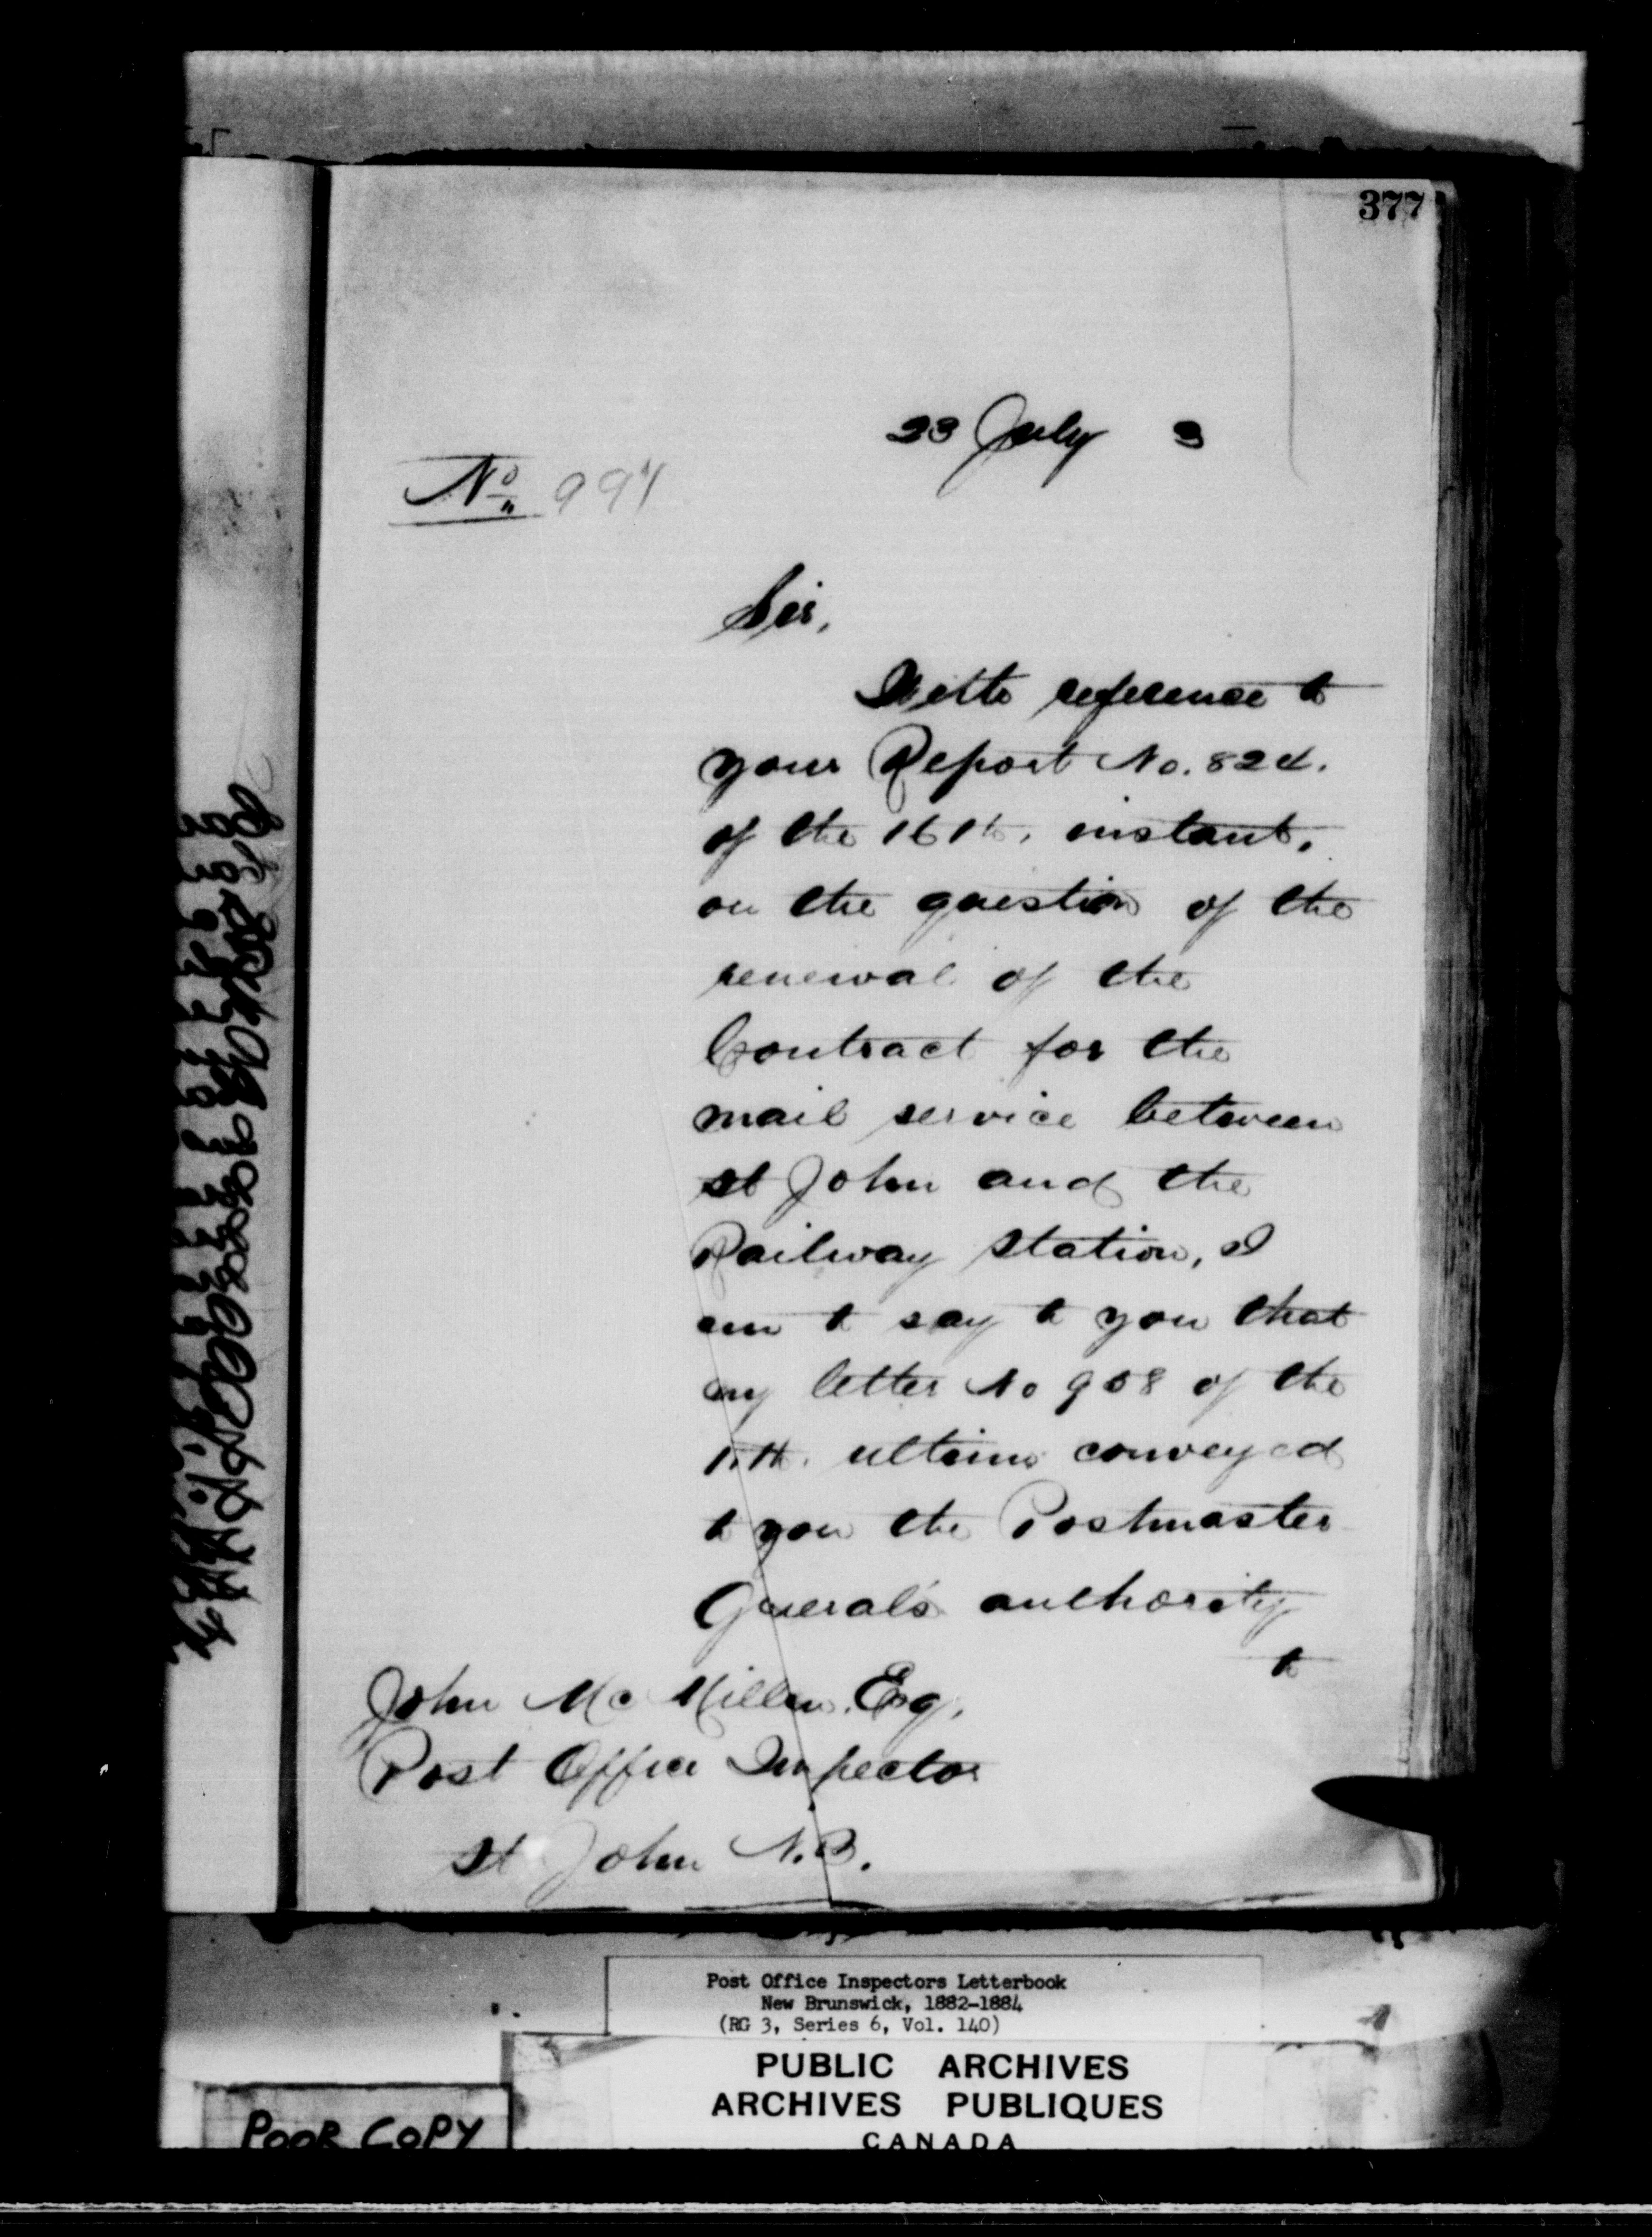 377
23 July 3
No. 991
Sir,
With reference to
your Report No. 824.
of the 16th. instant,
on the question of the
renewal of the
Contract for the
mail service between
St John and the
Railway Station, I
am to say to you that
my letter No 908 of the
ultimo conveyed
to you the Postmaster
General's authority
to
John McMillan Esq.
Post Office Inspector
St John N.B.
Post Office Inspectors Letterbook
New Brunswick, 1882-1884
(RG 3, Series 6, Vol. 140)
PUBLIC ARCHIVES
ARCHIVES PUBLIQUES
CANADA
POOR COPY